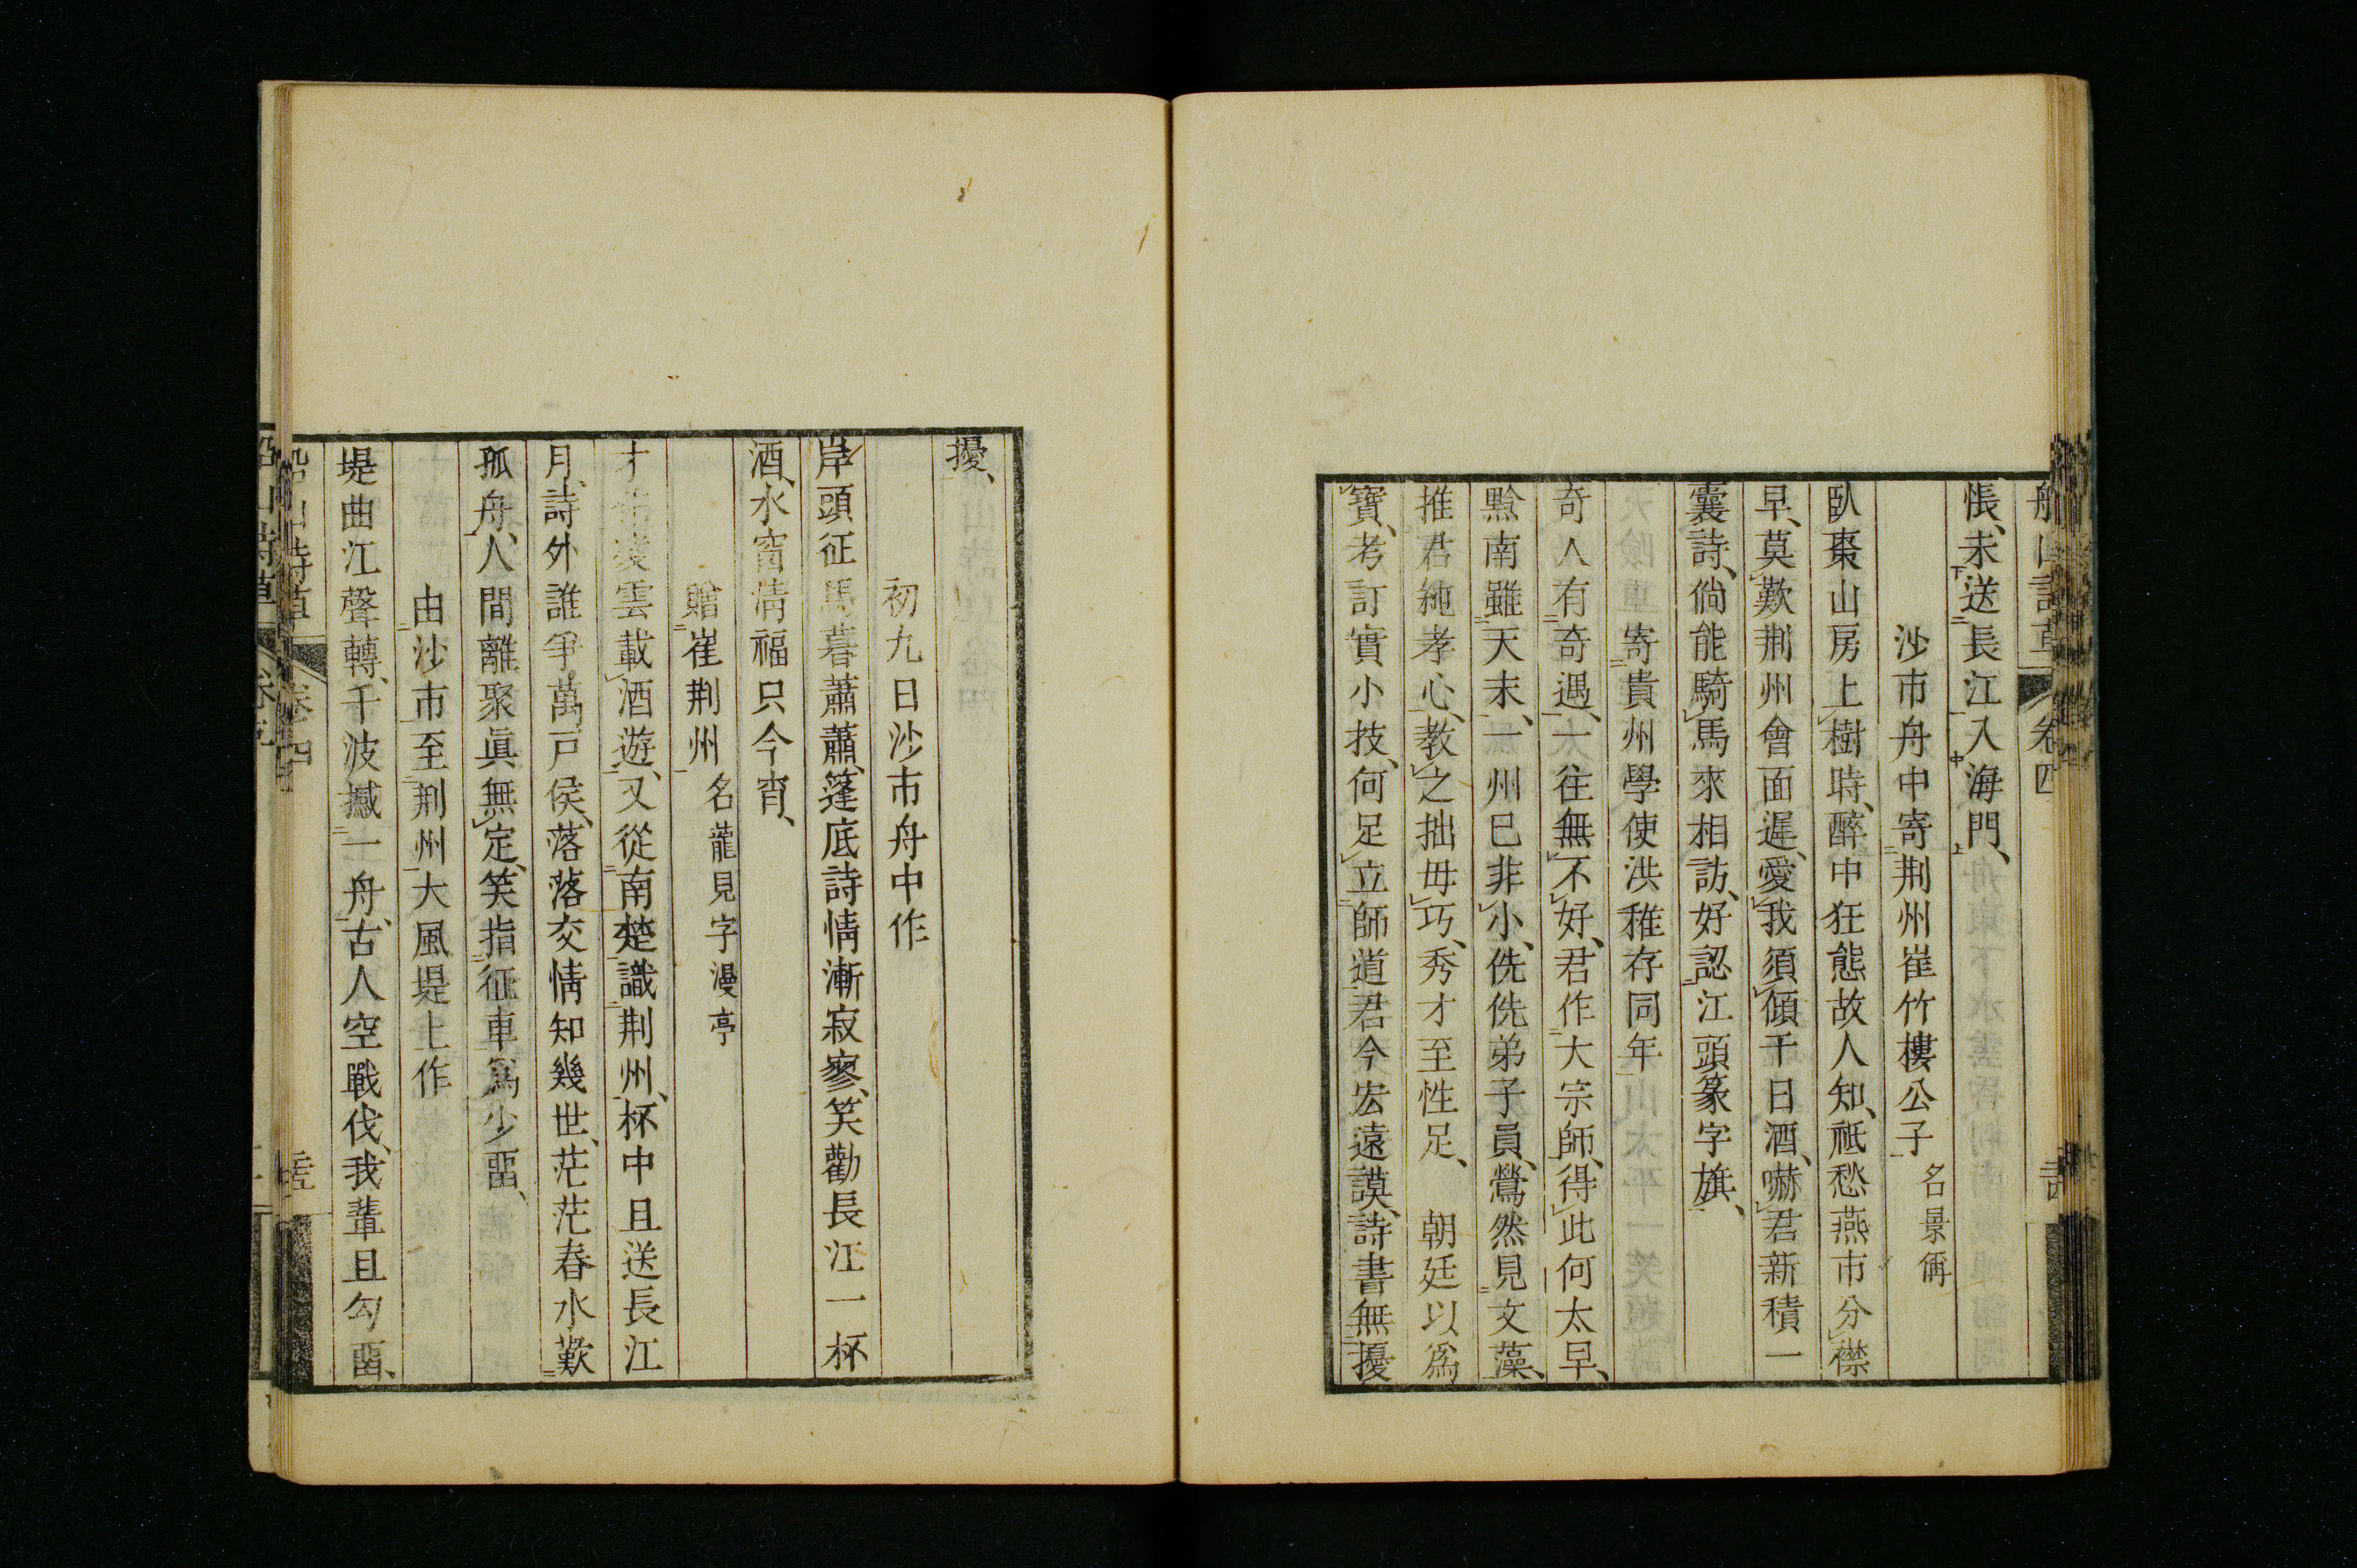 船山詩草 卷四
悵、未送長江入海門、
沙市舟中寄荆州崔竹樓公子 名景偁
臥棗山房上樹時、醉中狂態故人知、祗愁燕市分襟
早、莫歎荆州會面遲、愛我須傾千日酒、嚇君新積一
囊詩、倘能騎馬來相訪、好認江頭篆字旗、
寄貴州學使洪稚存同年
奇人有奇遇、一往無不好、君作大宗師、得此何太早、
黔南雖天末、一州巳非小、侁侁弟子員、鶯然見文藻、
推君純孝心、教之拙毋巧、秀才至性足、 朝廷以爲
寶、考訂實小技、何足立師道、君今宏遠謨、詩書無擾
擾、
初九日沙市舟中作
岸頭征馬暮蕭蕭、篷底詩情漸寂寥、笑勸長江一杯
酒、水窗清福只今宵、
贈崔荆州 名龍見字漫亭
才 凌雲載酒遊、又從南楚識荆州、杯中且送長江
月、詩外誰爭萬戸侯、落落交情知幾世、茫茫春水歎
孤舟、人間離聚眞無定、笑指征車爲少畱、
由沙市至荆州大風堤上作
堤曲江聲轉、千波撼一舟、古人空戰伐、我輩且勾畱、
船山詩草 卷四